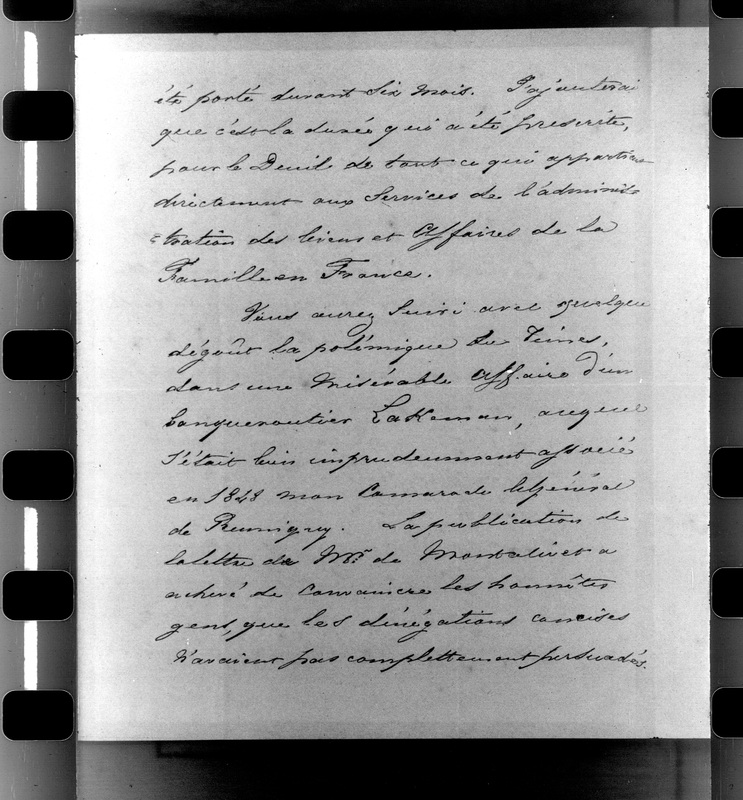 été porté durant Six Mois. J'ajouterai
que c'est la durée qui a été prescrite,
pour le Deuil de tout ce qui appartient
directement aux Services de l'adminis
=tration des biens et Affaires de la
Famille en France.
Vous aurez Suivi avec quelque
dégoût la polémique du Times,
dans une Misérable Affaire d'un
banqueroutier Lakeman, auquel
S'était bien imprudemment associé
en 1848 mon Camarade le Général
de Rumigny. La publication de
la lettre de Mr. de Montalivet a
achevé de Convaincre les honnêtes
gens, que les dénégations concises
N'avaient pas complettement persuadés.